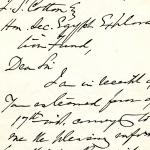 J. S. Cotton Esq
Hon. Sec. Egypt Explora-
tion Fund,
Dear Sir
I am in receipt of
Your esteemed favor of
17th ult. conveying to
me the pleasing inform